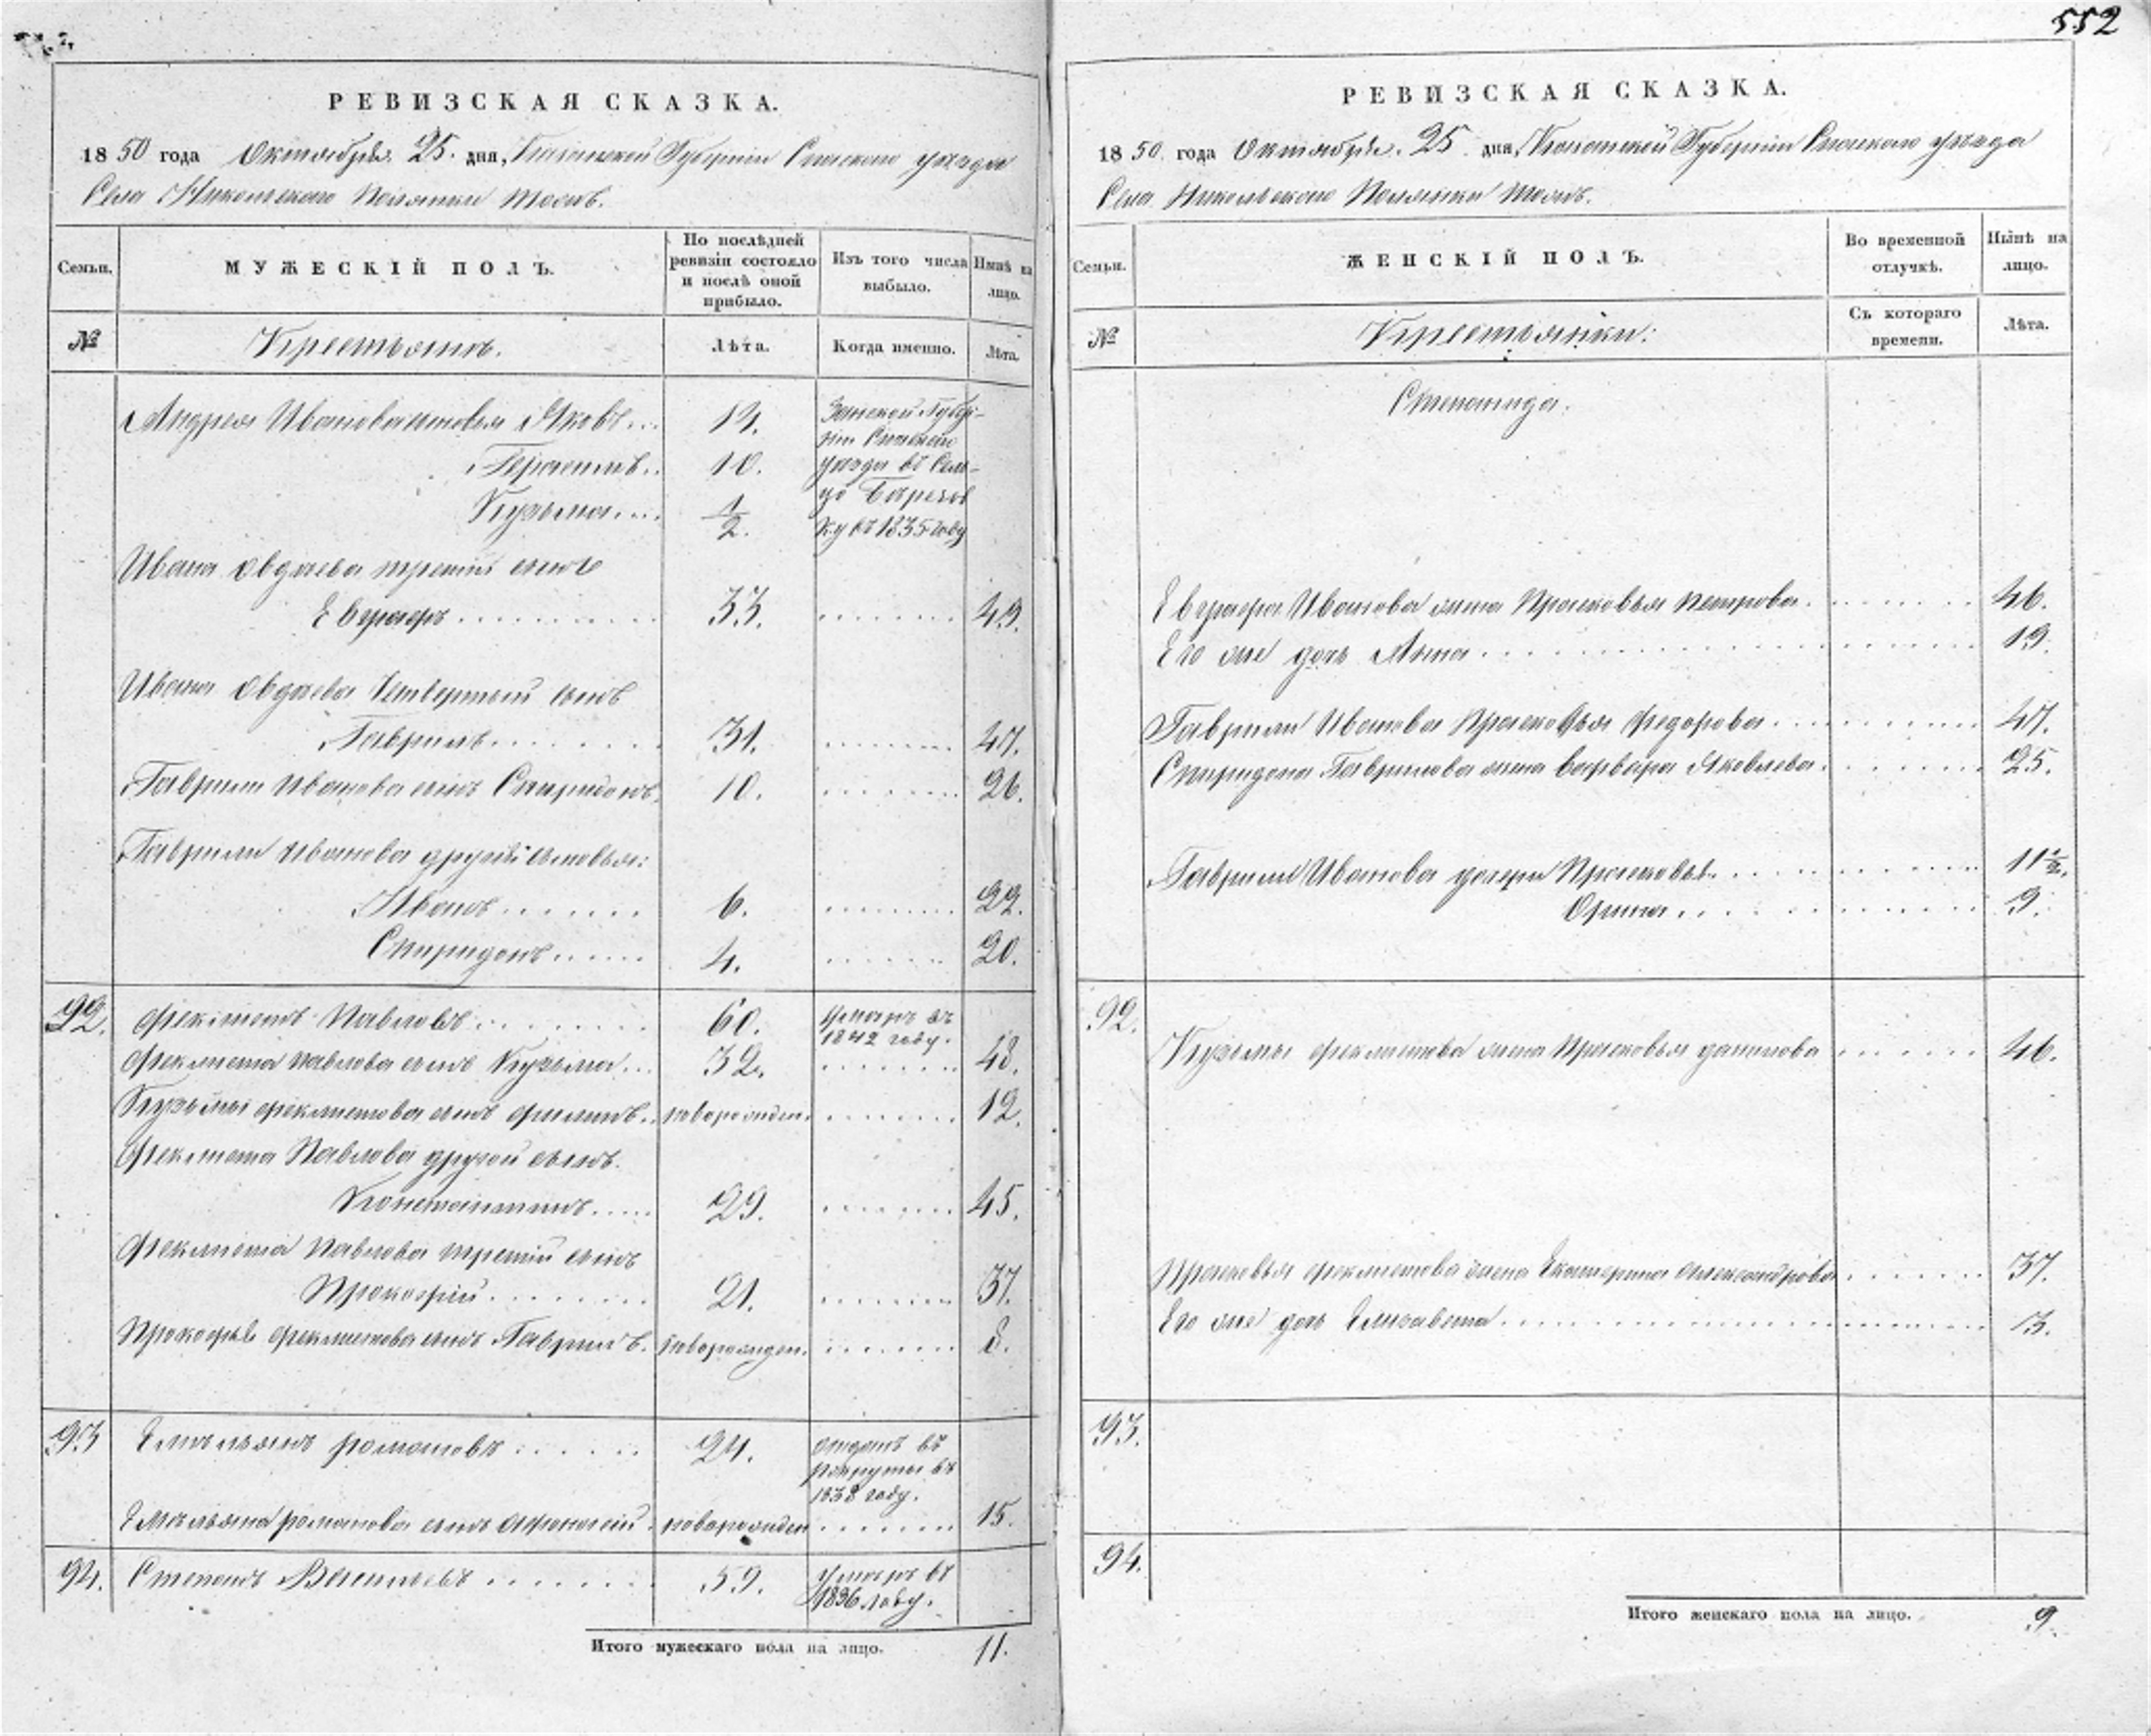 552
РЕВИЗСКАЯ СКАЗКА.
1850 года Октября 25. дня, Казанской Губернiи Спаскаго уѣзда
Села Никольскаго Полянки тожъ.
Семьи.
МУЖЕСКІЙ ПОЛЪ.
По послѣдней ревизіи состояло и послѣ оной прибыло.
Изъ того числа выбыло.
Нынѣ на лицо.
№
Крестьянъ.
Лѣта.
Когда именно.
Лѣта.
Андрея Иванова сыновья Яковъ... 14. Занской Губер-
ніи Спаской
Герасимъ.. 10. уѣзда въ Сель-
цо Березов
Кузьма.... 1/2. ку въ 1835 году
Ивана Авдѣева третій сынъ
Евграфъ .......... 33. ....... 49.
Ивана Авдѣева Четвертый сынъ
Гаврила........ 31. ....... 47.
Гаврилы Иванова сынъ Спиридонъ. 10. ....... 26.
Гаврилы Иванова другіе сыновья:
Иванъ....... 6. ....... 22.
Спиридонъ...... 4. ....... 20.
92. Феклистъ Павловъ........ 60. Умаръ въ
1842 году.
Феклиста Павлова сынъ Кузьма... 32. ....... 48.
Кузьмы Феклистова сынъ Филипъ.. новорожден. ....... 12.
Феклиста Павлова другой сынъ.
Константинъ..... 29. ....... 45.
Феклиста Павлова третій сынъ
Прокофій........ 21. ....... 37.
Прокофья Феклистова сынъ Гаврилъ. новорожден. ....... 8.
93 Емельянъ Романовъ ...... 24. отданъ въ
рекруты въ
1838 году.
Емельяна Романова сынъ Афонасій. новорожден ....... 15.
94. Степанъ Васильевъ ....... 59. умаръ въ
1836 году.
Итого мужескаго пола на лицо. 11.
РЕВИЗСКАЯ СКАЗКА.
1850. года Октября. 25. дня, Казанской Губерніи Спаскаго уѣзда
Села Никольскаго Полянки тожъ.
Семьи.
ЖЕНСКІЙ ПОЛЪ.
Во временной отлучкѣ.
Нынѣ на лицо.
№
Крестьянки:
Съ котораго времени.
Лѣта.
Степанида.
Евграфа Иванова жена Прасковья Петрова........ 46.
Его же дочь Анна............ 19.
Гаврилы Иванова Прасковья Федорова........ 47.
Спиридона Гаврилова жена Варвара Яковлева....... 25.
Гаврилы Иванова дочери Прасковья......... 11 1/2.
Орина......... 9.
92.
Кузьмы Феклистова жена Прасковья Данилова ...... 46.
Прокофья Феклистова жена Екатерина Александрова....... 37.
Его же дочь Елизавета............ 13.
93.
94.
Итого женскаго пола на лицо. 9.